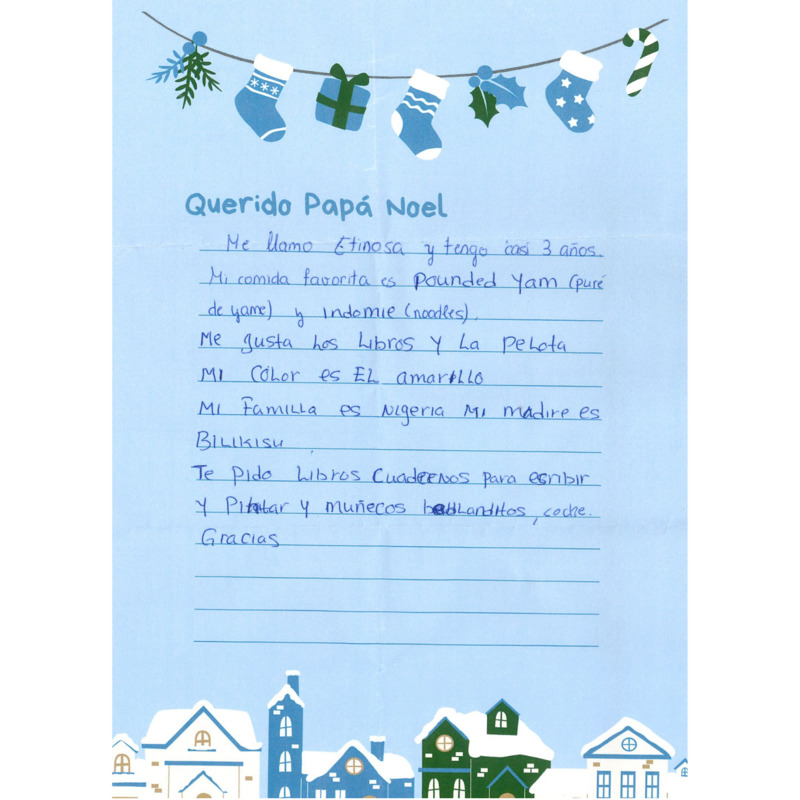 Querido Papá Noel
Me llamo Etinosa y tengo casi 3 años.
Mi comida favorita es Pounded Yam (puré
de yame) y Indomie (noodles).
Me gusta Los Libros Y La Pelota
MI COLOR es EL amarILLO
MI FamILLa es NIgeria MI madire es
BILIKISU.
Te Pido Libros Cuadernos para escribir
Y Pintar Y Muñecos blanditos, coche.
Gracias